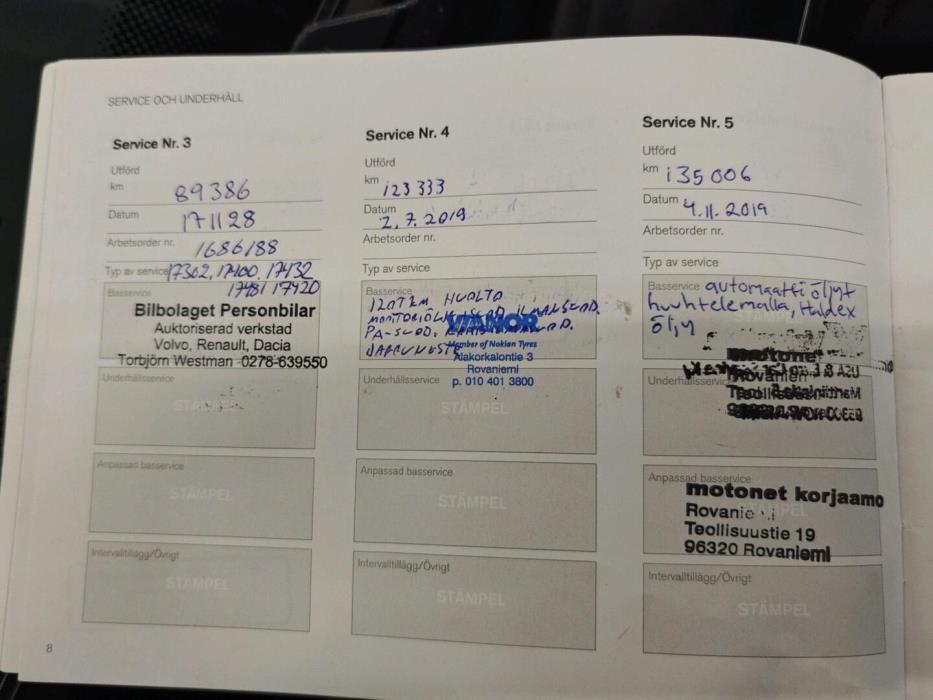 SERVICE OCH UNDERHÅLL
Service Nr. 3
Utförd
km 89386
Datum 171128
Arbetsorder nr. 1686188
Typ av service 17362, 17400, 17432
Basservice 17481 17420
Bilbolaget Personbilar
Auktoriserad verkstad
Volvo, Renault, Dacia
Torbjörn Westman 0278-639550
Underhållsservice
STÄMPEL
Anpassad basservice
STÄMPEL
Intervalltillägg/Övrigt
STÄMPEL
Service Nr. 4
Utförd
km 123 333
Datum 2.7.2019
Arbetsorder nr.
Typ av service
Basservice
120TKM HUOLTO
PA-SUOD.
VIANOR
JARRUNESTE
Member of Nokian Tyres
Alakorkalontie 3
Rovaniemi
p. 010 401 3800
Underhållsservice
STÄMPEL
Anpassad basservice
STÄMPEL
Intervalltillägg/Övrigt
STÄMPEL
Service Nr. 5
Utförd
km 135 006
Datum 4.11.2019
Arbetsorder nr.
Typ av service
Basservice automaatti öljyt
huuhtelemalla, Haldex
öljy
motonet
Underhållsservice
Anpassad basservice
motonet korjaamo
Teollisuustie 19
96320 Rovaniemi
Intervalltillägg/Övrigt
STÄMPEL
8